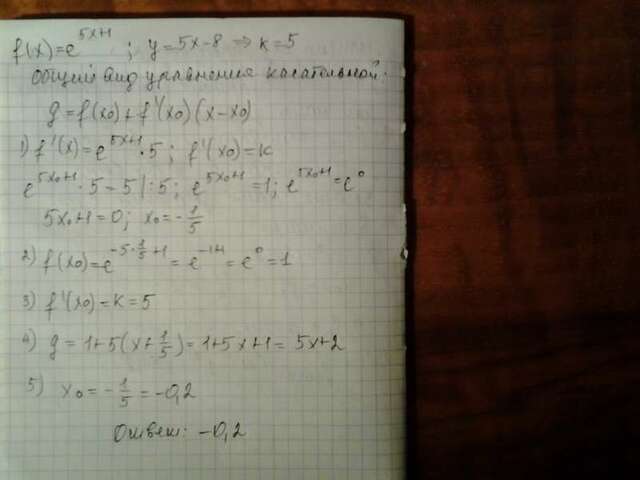 f(x)=e^{5x+1} ; y=5x-8 ⇒ k=5
Общий вид уравнения касательной:
y=f(x₀)+f'(x₀)(x-x₀)
1) f'(x)=e^{5x+1}·5; f'(x₀)=k
e^{5x₀+1}·5=5|:5; e^{5x₀+1}=1; e^{5x₀+1}=e⁰
5x₀+1=0; x₀=-1/5
2) f(x₀)=e^{-5·1/5+1}=e^{-1+1}=e⁰=1
3) f'(x₀)=k=5
4) y=1+5(x+1/5)=1+5x+1=5x+2
5) x₀=-1/5=-0,2
Ответ: -0,2